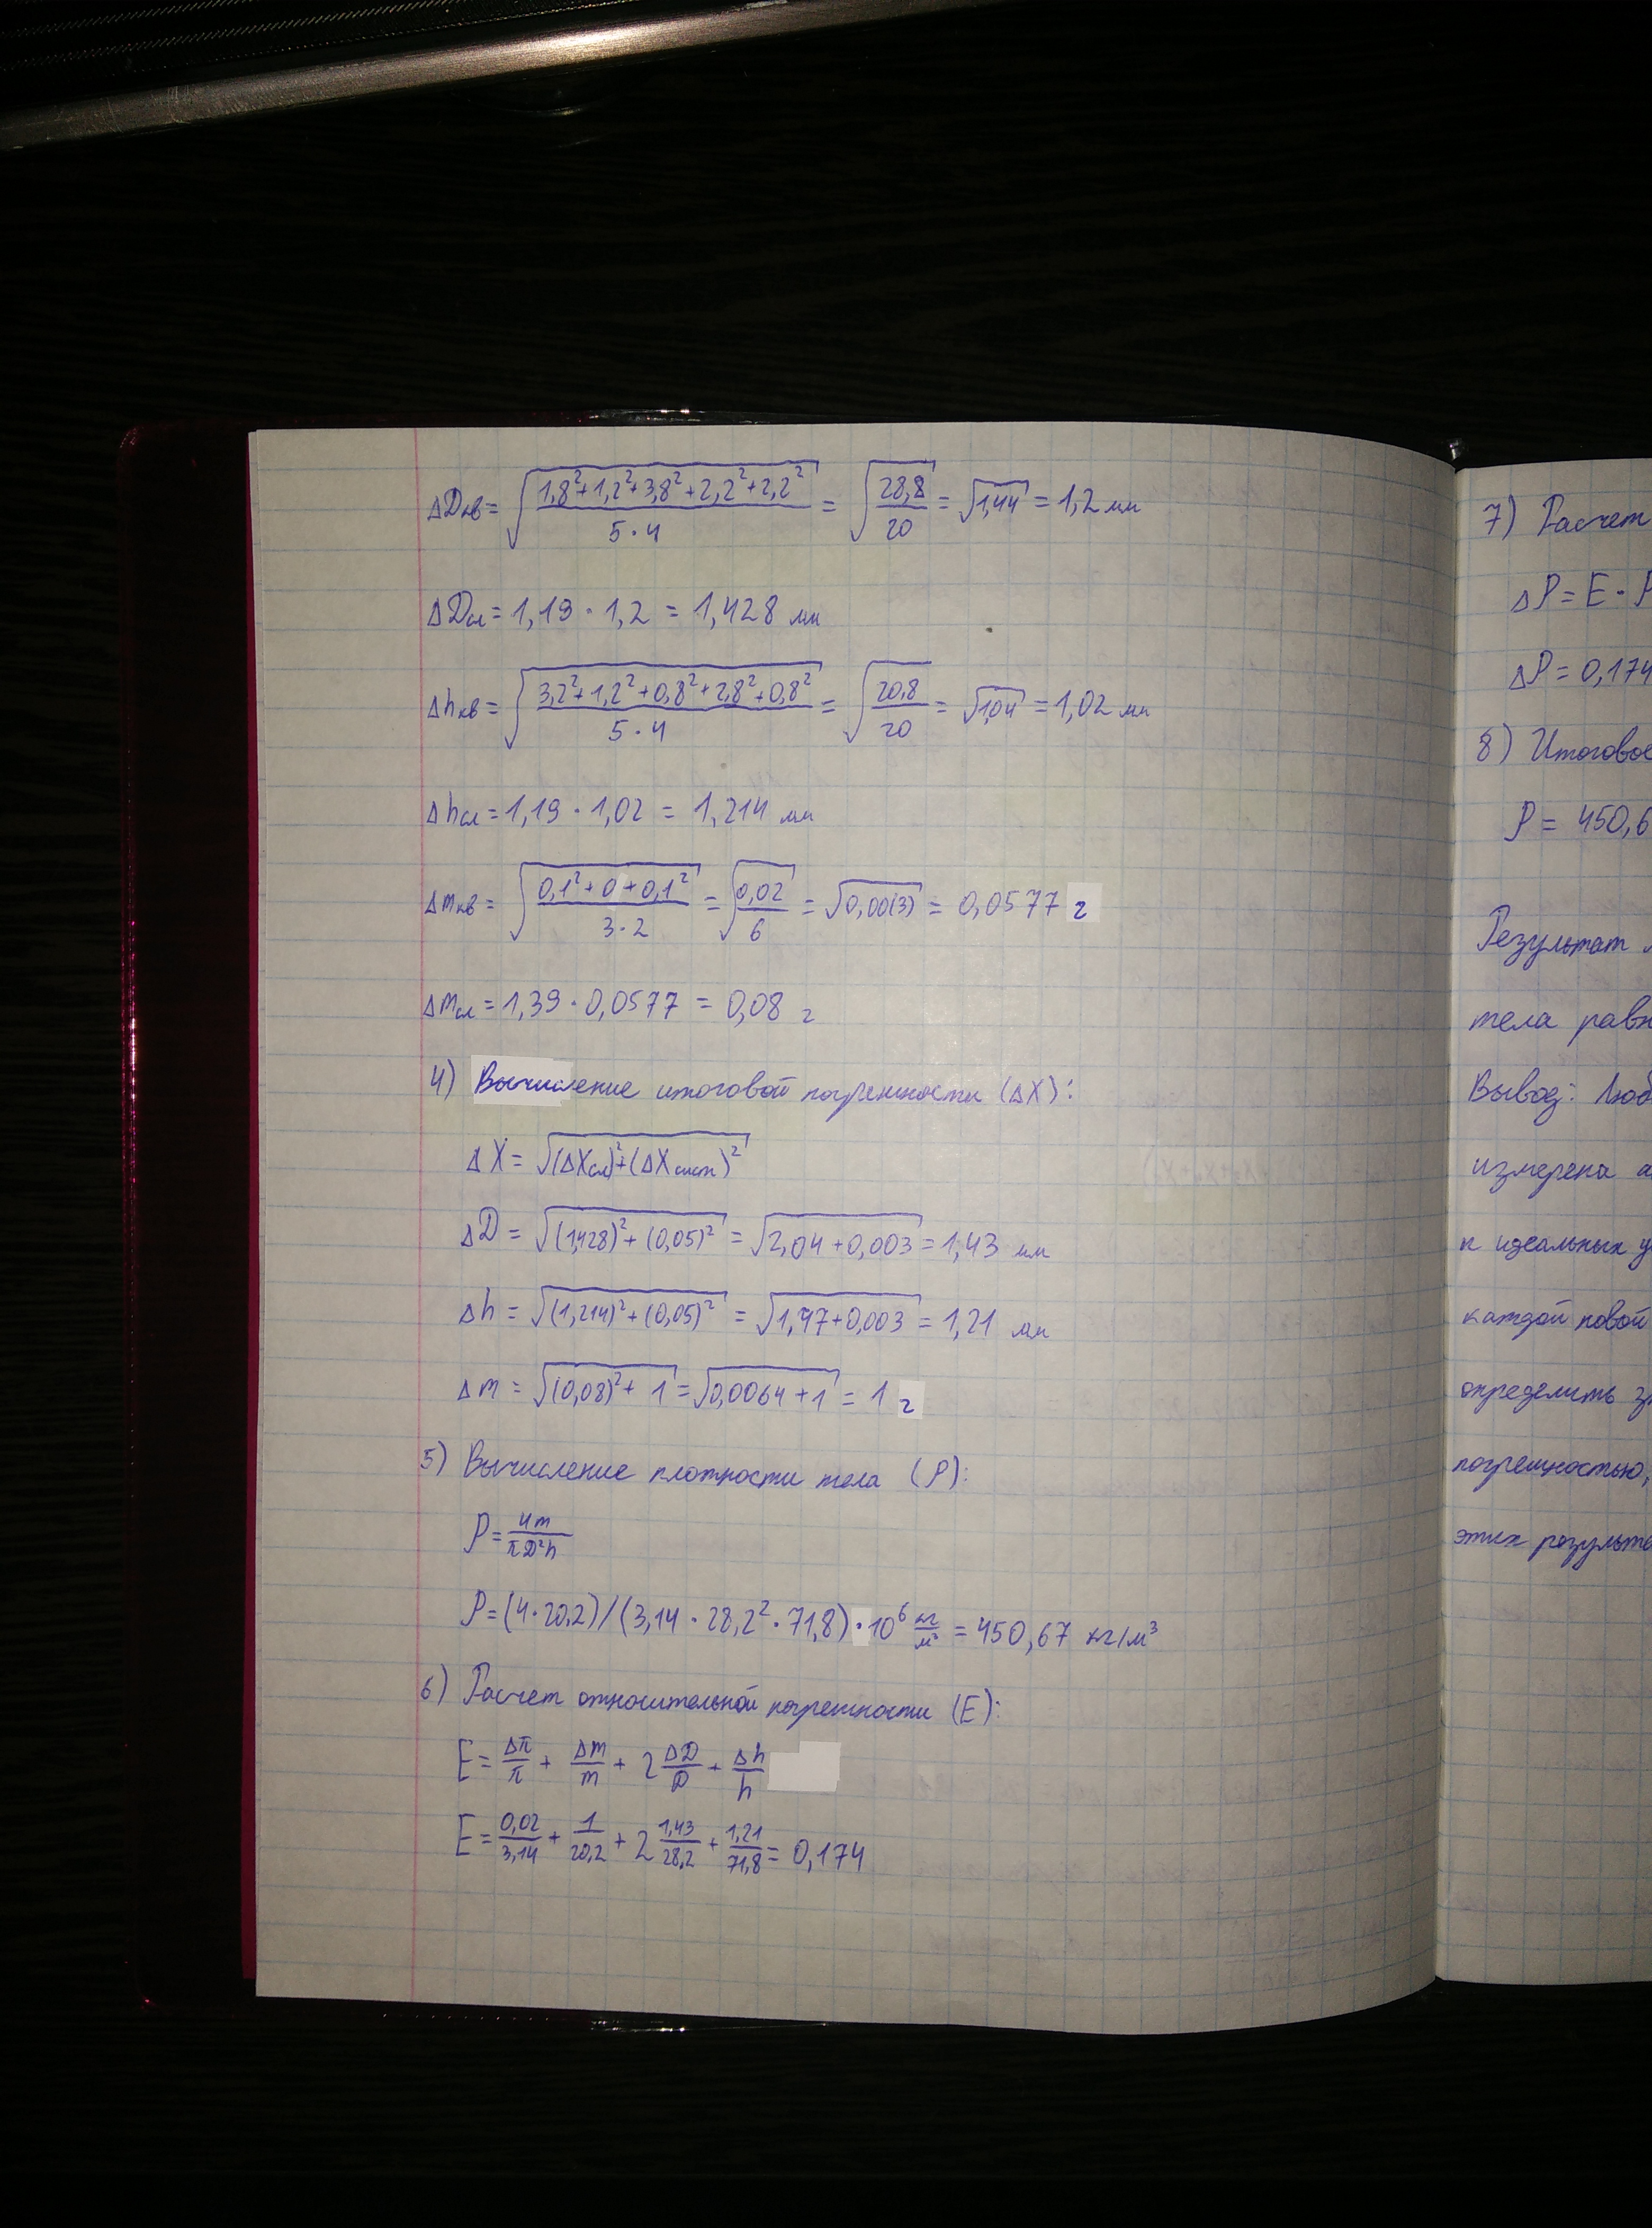 ΔDкв = √((1,8²+1,2²+3,8²+2,2²+2,2²)/(5·4)) = √(28,8/20) = √1,44 = 1,2 мм
ΔDсл = 1,19 · 1,2 = 1,428 мм
Δhкв = √((3,2²+1,2²+0,8²+2,8²+0,8²)/(5·4)) = √(20,8/20) = √1,04 = 1,02 мм
Δhсл = 1,19 · 1,02 = 1,214 мм
Δmкв = √((0,1²+0+0,1²)/(3·2)) = √(0,02/6) = √0,00(3) = 0,0577 г
Δmсл = 1,39 · 0,0577 = 0,08 г
4) Вычисление итоговой погрешности (ΔX):
ΔX = √((ΔXсл)²+(ΔXсист)²)
ΔD = √((1,428)²+(0,05)²) = √(2,04+0,003) = 1,43 мм
Δh = √((1,214)²+(0,05)²) = √(1,47+0,003) = 1,21 мм
Δm = √((0,08)²+1) = √(0,0064+1) = 1 г
5) Вычисление плотности тела (ρ):
ρ = 4m/πD²h
ρ = (4·20,2)/(3,14·28,2²·71,8)·10⁶ кг/м³ = 450,67 кг/м³
6) Расчет относительной погрешности (E):
E = Δπ/π + Δm/m + 2 ΔD/D + Δh/h
E = 0,02/3,14 + 1/20,2 + 2 1,43/28,2 + 1,21/71,8 = 0,174
7) Расчет
Δρ = E · ρ
Δρ = 0,174
8) Итоговое
ρ = 450,6
Результат
тела равн
Вывод: Люб
измерена а
к идеальных у
каждой новой
определить зн
погрешностью,
этих результа